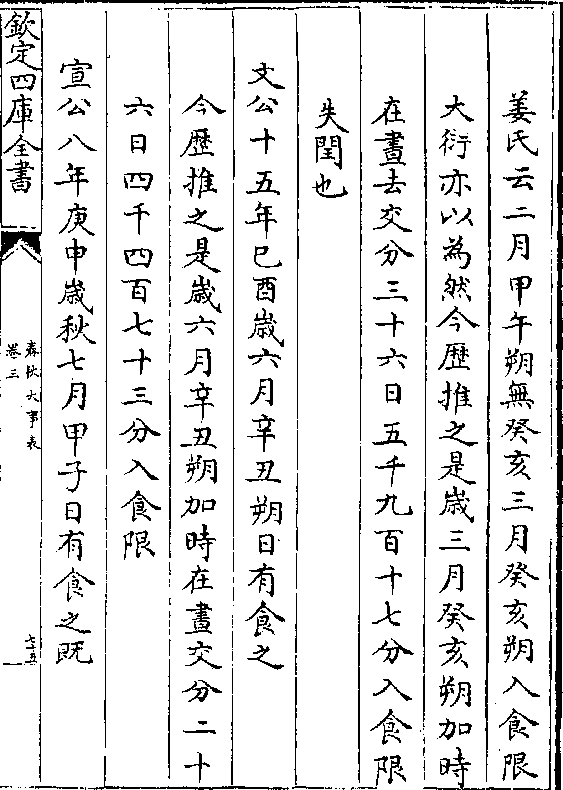 姜氏云二月甲午朔無癸亥三月癸亥朔入食限
大衍亦以為然今歴推之是歳三月癸亥朔加時
在晝去交分三十六日五千九百十七分入食限
失閏也
文公十五年巳酉歳六月辛丑朔日有食之
今歴推之是歳六月辛丑朔加時在晝交分二十
六日四千四百七十三分入食限
宣公八年庚申歳秋七月甲子日有食之既
欽定四庫全書
春秋大事表
卷三